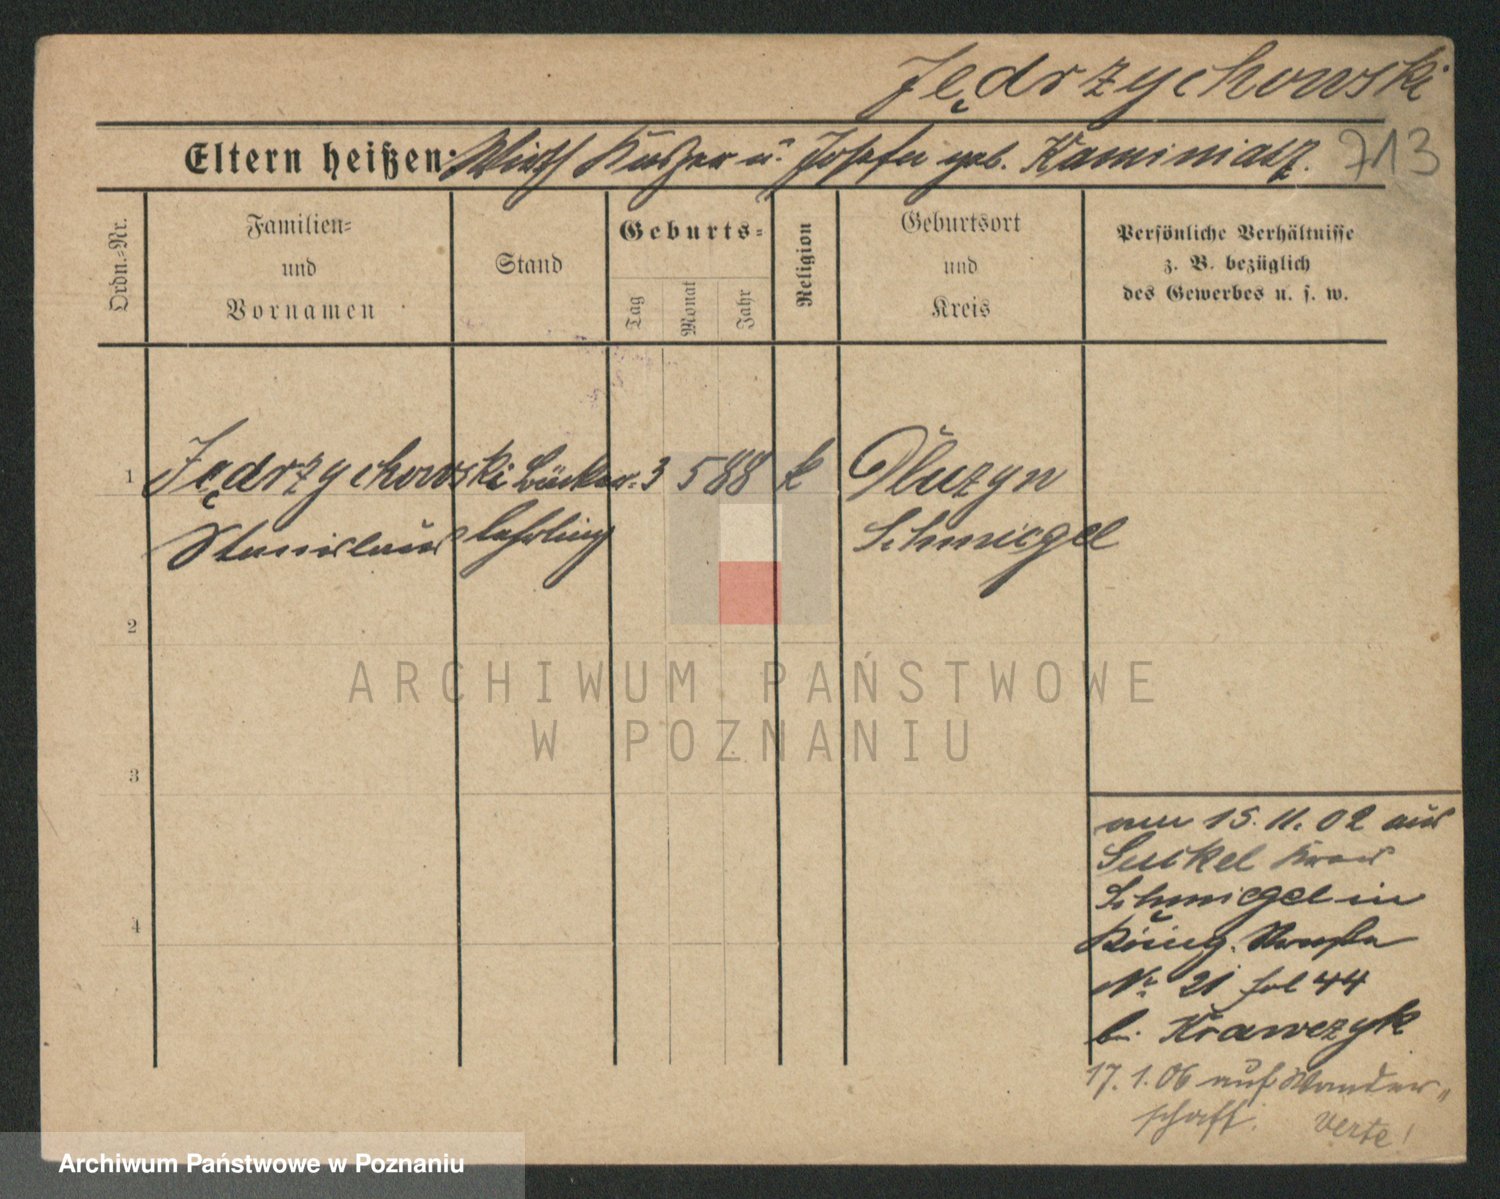 Jędrzychowski
Eltern heißen: Wirth Kasper u. Josefa geb. Kaminiarz. 713
Ordn.-Nr.
Familien-
und
Vornamen
Stand
Geburts-
Tag
Monat
Jahr
Religion
Geburtsort
und
Kreis
Persönliche Verhältnisse
z. B. bezüglich
des Gewerbes u. s. w.
1 Jędrzychowski Bäcker- 3 5 88 k Dluzyn
Stanislaus lehrling Schmiegel
2
ARCHIWUM PAŃSTWOWE
W POZNANIU
3
am 15. 11. 02 aus
Kreis
Schmiegel in
4
No 21 fol 44
bei Krawczyk
17. 1. 06 auf Wander-
schaft. Verte!
Archiwum Państwowe w Poznaniu